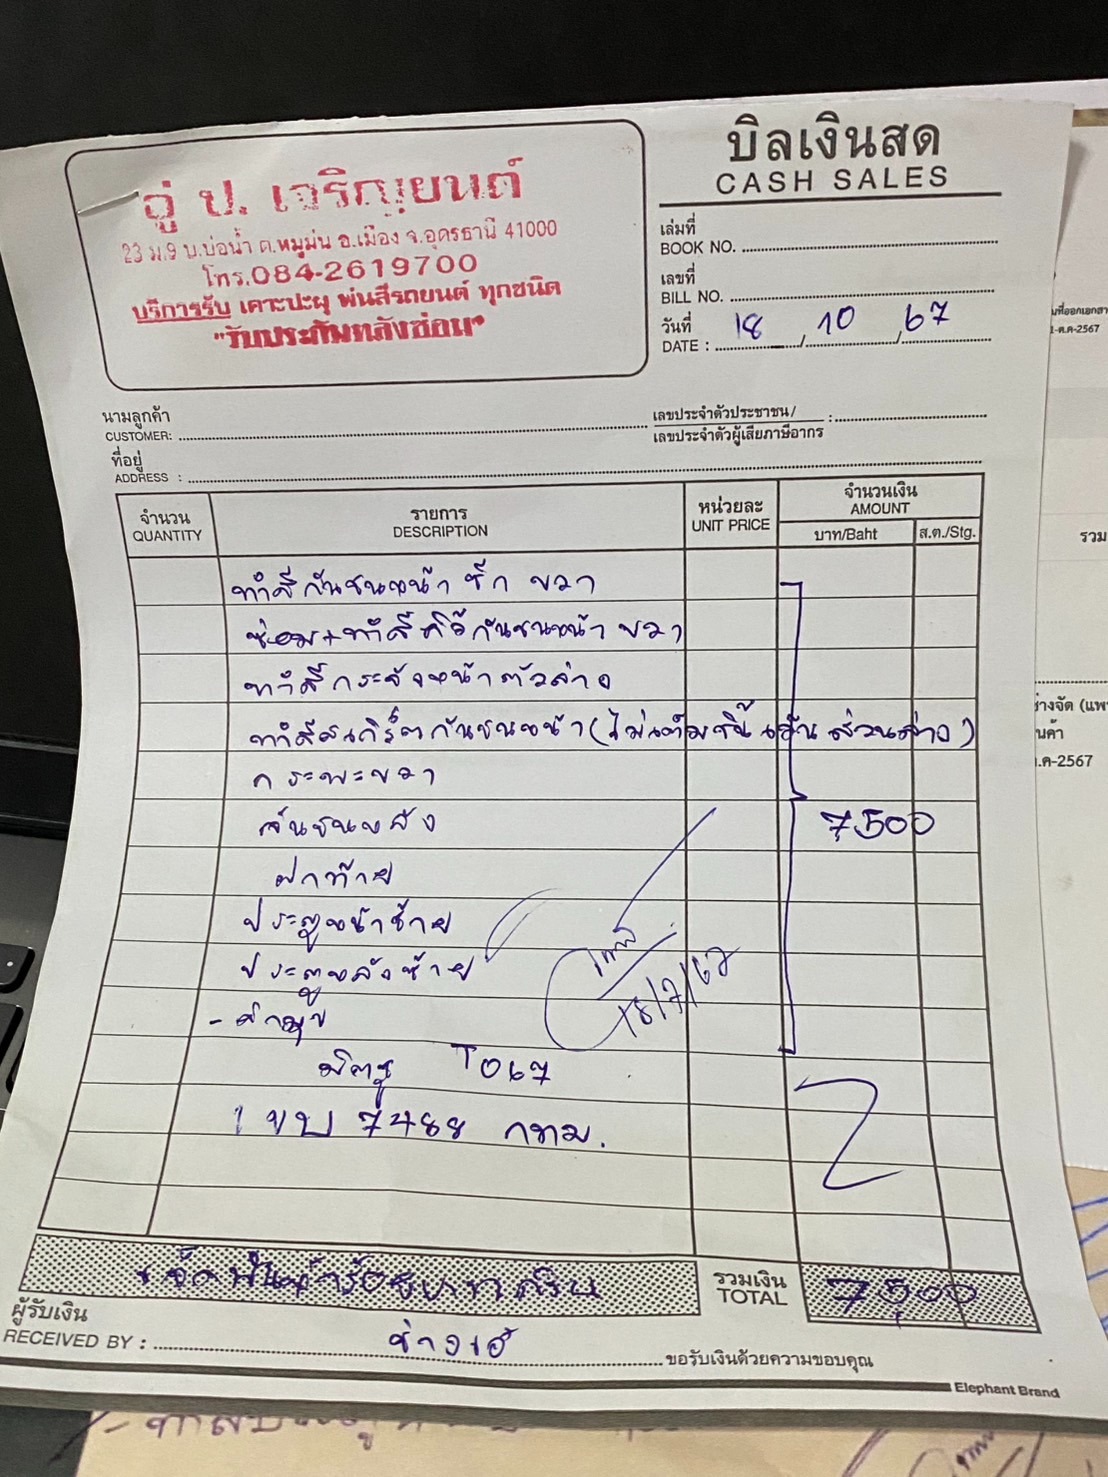 บิลเงินสด
CASH SALES
อู่ ป. เจริญยนต์
23 ม.9 บ.บ่อน้ำ ต.หมูม่น อ.เมือง จ.อุดรธานี 41000
โทร.084-2619700
บริการรับ เคาะปะผุ พ่นสีรถยนต์ ทุกชนิด
"รับประกันหลังซ่อม"
เล่มที่
BOOK NO.
เลขที่
BILL NO.
วันที่
DATE : 18 / 10 / 67
นามลูกค้า
CUSTOMER:
เลขประจำตัวประชาชน/
เลขประจำตัวผู้เสียภาษีอากร :
ที่อยู่
ADDRESS :
จำนวน
QUANTITY
รายการ
DESCRIPTION
หน่วยละ
UNIT PRICE
จำนวนเงิน
AMOUNT
บาท/Baht ส.ต./Stg.
ทำสีกันชนหน้า ซีก ขวา
ซ่อม+ทำสีคิ้วกันชนหน้า ขวา
ทำสีกระจังหน้าตัวล่าง
ทำสีสเกิร์ตกันชนหน้า (ไม่เต็มชิ้น เน้น ส่วนล่าง)
กระพะขวา
กันชนหลัง
7500
ฝาท้าย
ประตูหน้าซ้าย
ประตูหลังซ้าย
18/7/67
- สีามุข
มิตซู T067
1 ขบ 7488 กทม.
เจ็ดพันห้าร้อยบาทถ้วน
รวมเงิน
TOTAL
7,500
ผู้รับเงิน
RECEIVED BY : ช่างเอ๋
ขอรับเงินด้วยความขอบคุณ
Elephant Brand
-ต.ค-2567
รวม
นค้า
.ค-2567